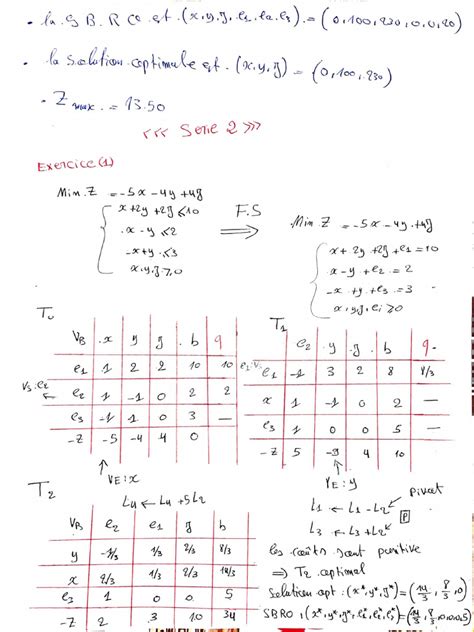 . la S B R Co est . (x, y, z, e1, e2, e3) = (0, 100, 230, 0, 0, 20)
. la solution optimale est . (x, y, z) = (0, 100, 230)
. Z max = 13.50
<<< Serie 2 >>>
Exercice (1)
Min. Z = -5x - 4y + 4z
x + 2y + 2z ≤ 10
x - y ≤ 2
-x + y ≤ 3
x, y, z ≥ 0
F.S
⇒
Min. Z = -5x - 4y + 4z
x + 2y + 2z + e1 = 10
x - y + e2 = 2
-x + y + e3 = 3
x, y, z, ei ≥ 0
T0
VB x y z b q
e1 1 2 2 10 10
VS: e2 ← e2 1 -1 0 2 2
e3 -1 1 0 3 —
-Z -5 -4 4 0
VE: x
T1
e2 y z b q
e1 -1 3 2 8 8/3
x 1 -1 0 2 —
e3 1 0 0 5 —
-Z 5 -9 4 10
VE: y
L4 ← L4 + 5L2
L1 ← L1 - L2
L3 ← L3 + L2
P
pivot
T2
VB e2 e1 z b
y -1/3 1/3 2/3 8/3
x 2/3 1/3 2/3 14/3
e3 1 0 0 5
-Z 2 3 10 34
les coûts sont positive
⇒ T2 optimal
Solution opt : (x*, y*, z*) = (14/3, 8/3, 0)
SBRO : (x*, y*, z*, e1*, e2*, e3*) = (14/3, 8/3, 0, 0, 0, 5)